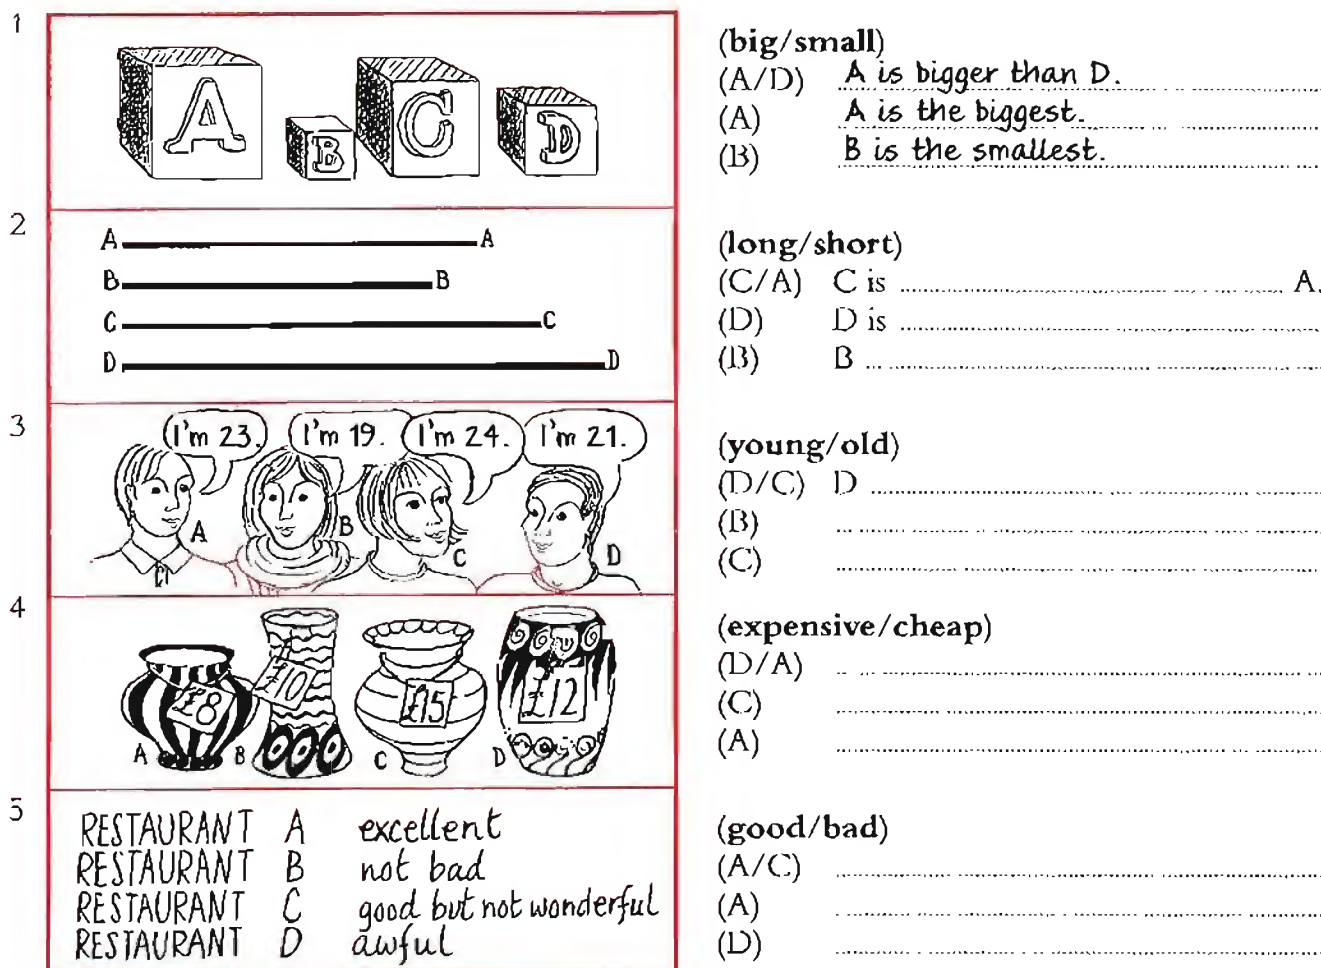 1
A
B
C
D
(big/small)
(A/D) A is bigger than D.
(A) A is the biggest.
(B) B is the smallest.
2
A A
B B
C C
D D
(long/short)
(C/A) C is A.
(D) D is
(B) B
3
I'm 23. I'm 19. I'm 24. I'm 21.
A B C D
(young/old)
(D/C) D
(B)
(C)
4
£8 £10 £15 £12
A B C D
(expensive/cheap)
(D/A)
(C)
(A)
5
RESTAURANT A excellent
RESTAURANT B not bad
RESTAURANT C good but not wonderful
RESTAURANT D awful
(good/bad)
(A/C)
(A)
(D)